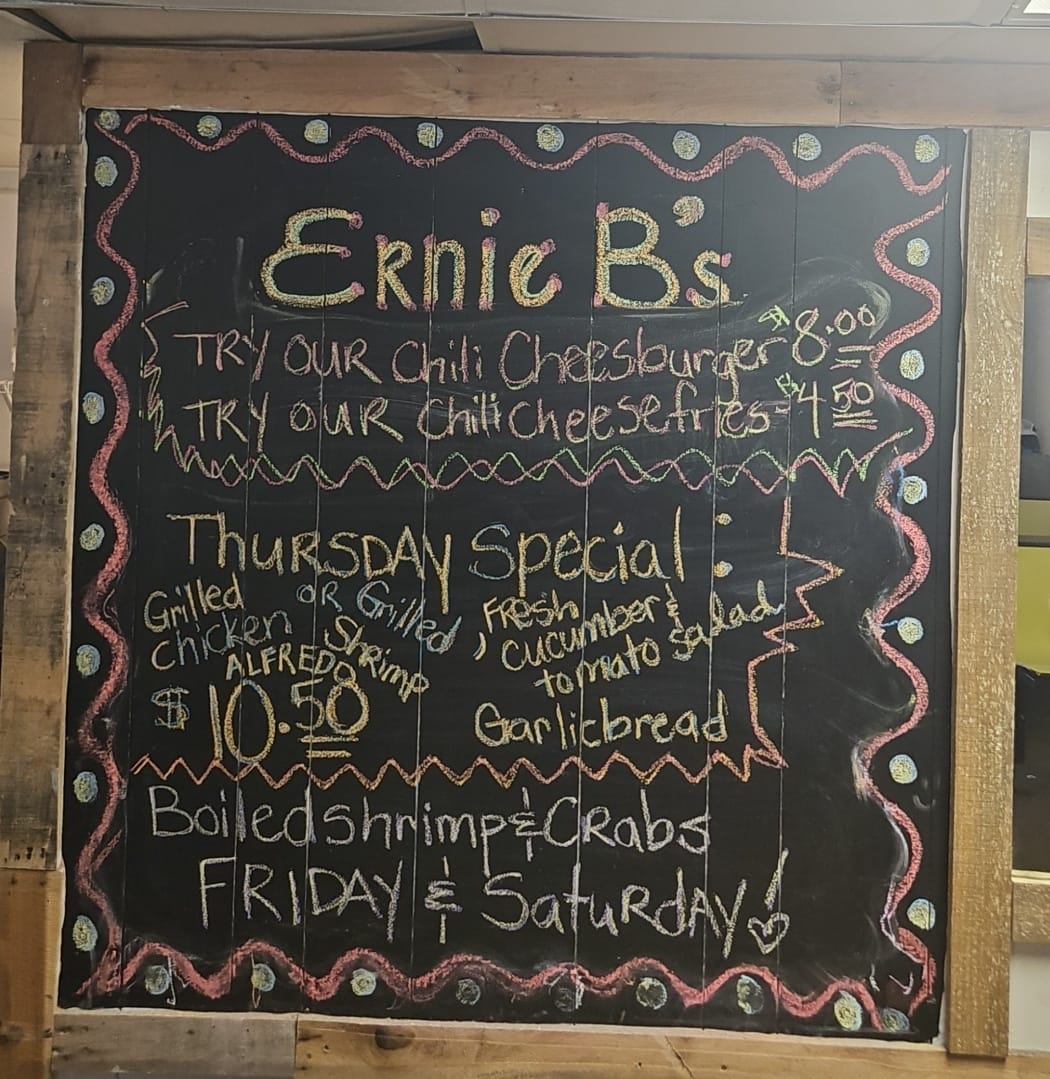 Ernie B's
TRY OUR Chili Cheesburger $8.00
TRY OUR Chili cheese fries - $4 50
THURSDAY Special:
Grilled chicken OR Grilled Shrimp
ALFREDO
$10.50
, FRESH
cucumber &
tomato salad
Garlicbread
Boiled shrimp & CRabs
FRIDAY & SatuRdAY!